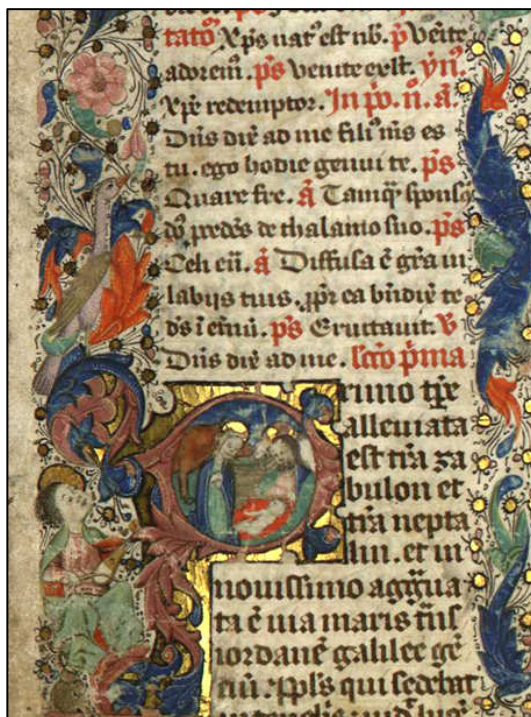 tato Xp̄s nat᷒ est nb. p̄ venite
adorem᷒. p̄s venite exlt. ym̄.
Xp̄e redemptor. In p̄o. n̄. ā.
Dn̄s dix̄ ad me fili᷒ m̄s es
tu. ego hodie genui te. p̄s
Quare fre. ā Tamq̄ꝫ spons᷒
dn̄s p̄cedēs de thalamo suo. p̄s
Celi en̄. ā Diffusa ē gr̄a in
labijs tuis. ꝓp̄t ea bn̄dix̄ te
ds̄ ī etn̄ū. p̄s Eructauit. v̄
Dn̄s dix̄ ad me. lc̄cō p̄ma
Primo tp̄re
alleuiata
est tr̄a za
bulon et
tr̄a nepta
lim. et in
nouissimo aggͣua
ta ē uia maris tn̄s
iordanē galilee gē
tiū. Ppl̄s qui sedebat